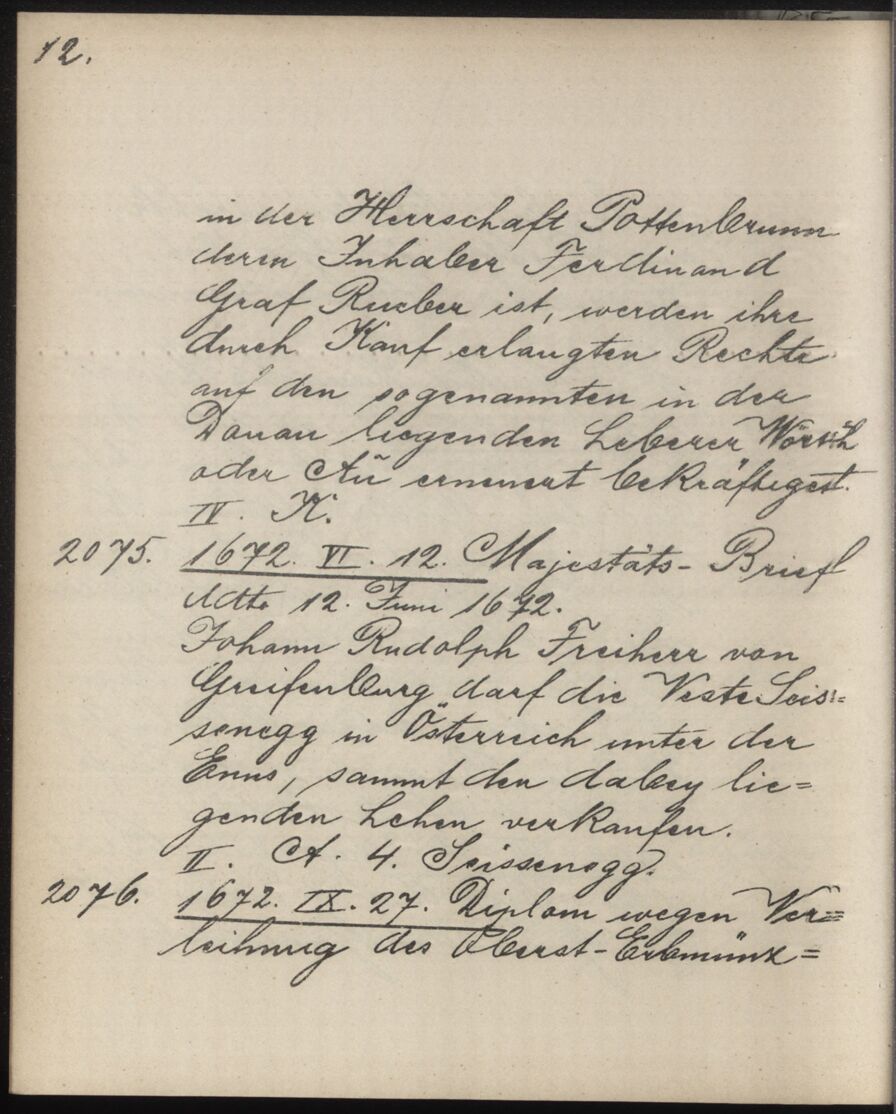 12.
in der Herrschaft Pottenbrunn
deren Inhaber Ferdinand
Graf Rueber ist, werden ihre
durch Kauf erlangten Rechte
auf den sogenannten in der
Donau liegenden Leberer Wörth
oder Aü erneuert bekräftiget.
IV. K.
2075. 1672. VI. 12. Majestäts-Brief
ddto 12. Juni 1672.
Johann Rudolph Freiherr von
Greifenburg darf die Veste Seis=
senegg in Österreich unter der
Enns, sammt den dabey lie=
genden Lehen verkaufen.
II. A. 4. Seissenegg.
2076. 1672. IX. 27. Diplom wegen Ver=
leihung des Oberst-Erbmünz=